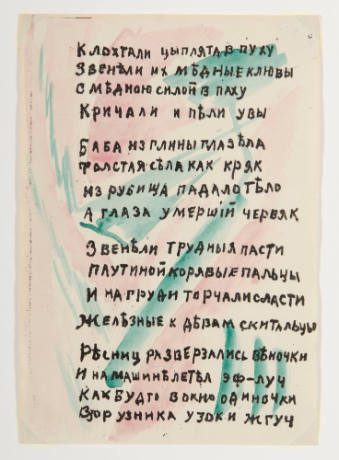 Клохтали цыплята в пуху
Звенѣли их мѣдные клювы
С мѣдною силой в паху
Кричали и пѣли увы
Баба из глины глазѣла
Толстая сѣла как кряк
Из рубища падало тѣло
А глаза умершій червяк
Звенѣли трудныя пасти
Паутиной корявые пальцы
И на груди торчали сласти
Желѣзные к дѣвам скитальцы
Рѣсниц разверзались вѣночки
И на машинѣ летѣл эф-луч
Как будто в окно одиночки
Взор узника узок и жгуч